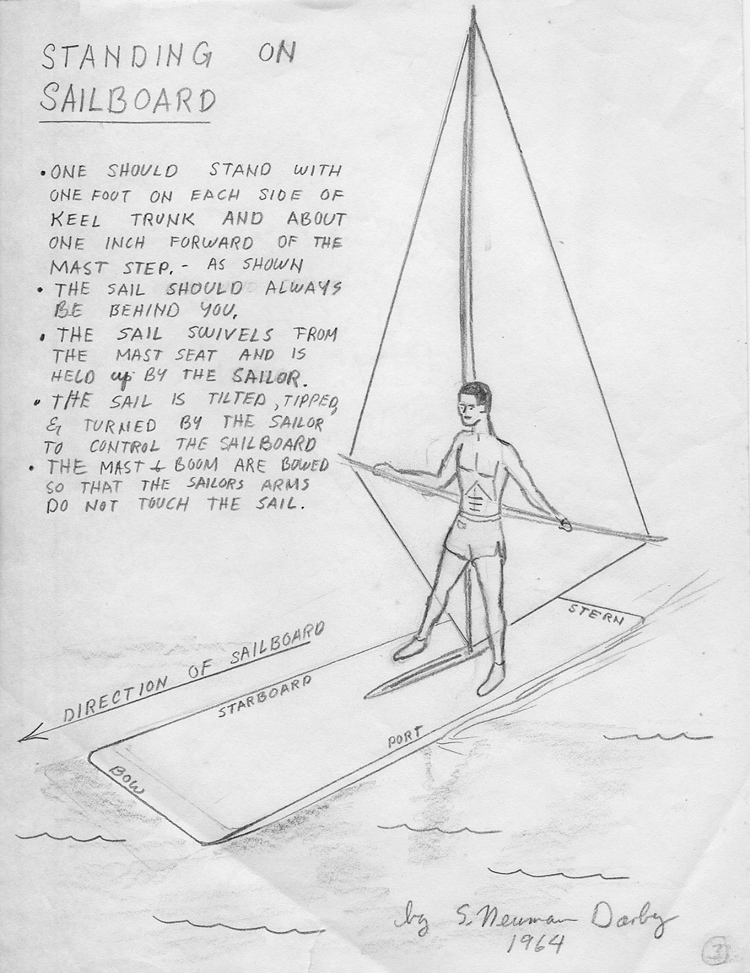 STANDING ON
SAILBOARD
• ONE SHOULD STAND WITH
ONE FOOT ON EACH SIDE OF
KEEL TRUNK AND ABOUT
ONE INCH FORWARD OF THE
MAST STEP. - AS SHOWN
• THE SAIL SHOULD ALWAYS
BE BEHIND YOU.
• THE SAIL SWIVELS FROM
THE MAST SEAT AND IS
HELD up BY THE SAILOR.
• THE SAIL IS TILTED, TIPPED,
& TURNED BY THE SAILOR
TO CONTROL THE SAILBOARD
• THE MAST & BOOM ARE BOWED
SO THAT THE SAILORS ARMS
DO NOT TOUCH THE SAIL.
STERN
DIRECTION OF SAILBOARD
STARBOARD
PORT
BOW
by S. Newman Darby
1964
3